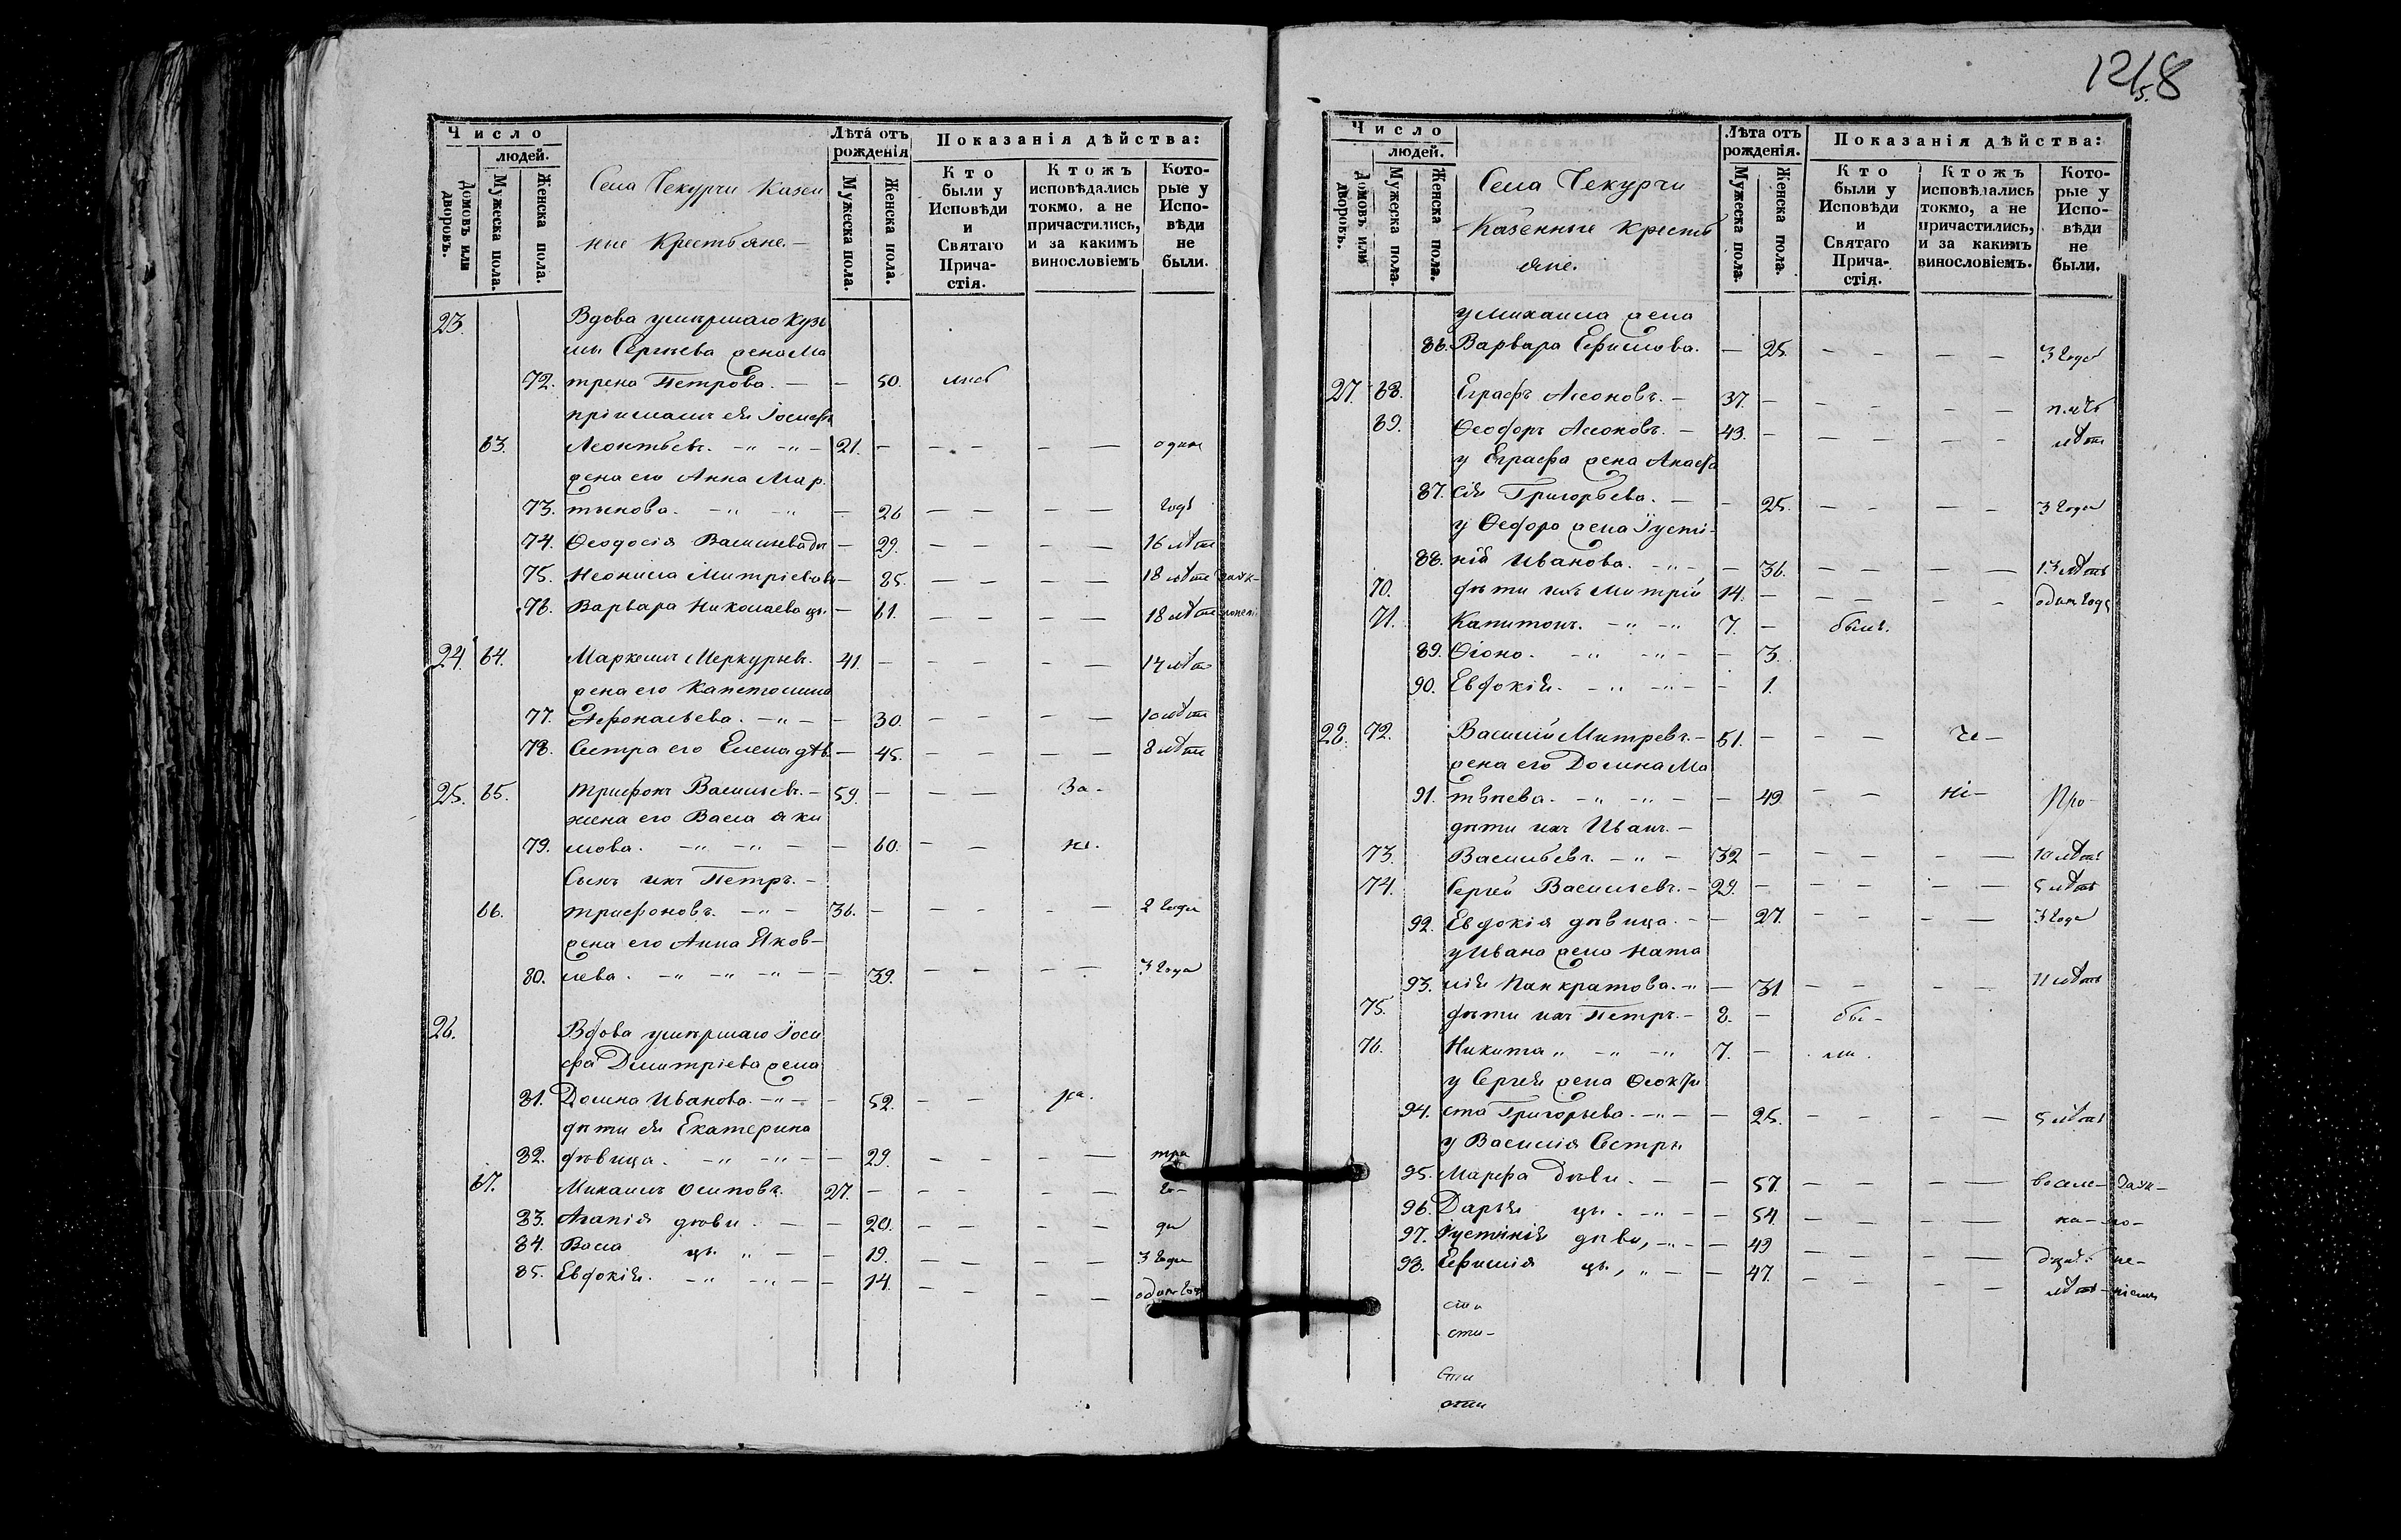 1218
5.
Число
людей.
Домовъ или дворовъ.
Мужеска пола.
Женска пола.
Села Чекурчи Казен
ные Крестьяне. —
Лѣта отъ рожденія
Мужеска пола.
Женска пола.
Показанія дѣйства:
Кто были у Исповѣди и Святаго Причастія.
Ктожъ исповѣдались токмо, а не причастились, и за какимъ винословіемъ
Которые у Исповѣди не были.
23. Вдова умершаго Кузь
мы Сергѣева жена Ма
72. трена Петрова. — — 50.
пріимашъ ея Іосифъ
63. Леонтьевъ. — " — " — 21. — — — — — одинъ
жена его Анна Мар
73. тынова. — " — " — 26 — — — — годъ
74. Ѳеодосія Васильева — 29. — — — — 16 лѣтъ
75. Неонила Митріева — 85. — — — — 18 лѣтъ
76. Варвара Николаева — 61. — — — — 18 лѣтъ
24. 64. Маркелъ Меркурьевъ. 41. — — — — — 14 лѣтъ
жена его Капетолина
77. Аѳонасьева. — " — — 30. — — — — 10 лѣтъ
78. Сестра его Елена дѣв. — 45. — — — — 8 лѣтъ
25. 65. Трифонъ Васильевъ. — 59. — — — За-
жена его Васса Яки
79. мова. — " — " — — 60. — — не.
Сынъ ихъ Петръ. —
66. Трифоновъ. — " — 36. — — — — — 2 года
жена его Анна Яков-
80. лева. — " — " — " — — 39. — — — — 3 года
26. Вдова умершаго Іоси
фа Дмитріева жена
81. Домна Иванова. — " — — 52. — — ра.
дѣти ея Екатерина
82. дѣвица. — " — " — — 29. — — — — три
67. Михаилъ Осиповъ. 27. — — — — — го-
83. Агапія дѣви. — — 20. — — — — ды
84. Васса цы. " — — 19. — — — — 3 года
85. Евдокія. — " — " — — 14. — — — — одинъ годъ
Число
людей.
Домовъ или дворовъ.
Мужеска пола.
Женска пола.
Села Чекурчи
Казенные Кресть
яне.
Лѣта отъ рожденія.
Мужеска пола.
Женска пола.
Показанія дѣйства:
Кто были у Исповѣди и Святаго Причастія.
Ктожъ исповѣдались токмо, а не причастились, и за какимъ винословіемъ.
Которые у Исповѣди не были.
у Михаила жена
86. Варвара Ефимова. — 25. — — — — 3 года
27. 68. Еграфъ Асоновъ. — 37. — — — — —
69. Ѳеодоръ Асоновъ. — 43. — — — — — лѣтъ
у Еграфа жена Анаста
87. сія Григорьева. — — 25. — — — — 3 года
у Ѳеодора жена Іусти-
88. нія Иванова. — " — — 36. — — — — 13 лѣтъ
70. дѣти ихъ Митрій 14. — — — — — одинъ годъ
71. Капитонъ. — " — " 7. — былъ.
89. — " — " — — 3.
90. Евдокія. — " — " — — 1.
28. 72. Василій Митревъ. — 51. — — — Че-
жена его Домна Ма
91. твѣева. — " — " — — 49. — — ні- Про-
дѣти ихъ Иванъ. —
73. Васильевъ. — " — 32 — — — — — 10 лѣтъ
74. Сергей Васильевъ. — 29. — — — — — 5 лѣтъ
92. Евдокія дѣвица. — — 27. — — — — 3 года
у Ивана жена Ната
93. лія Панкратова. — " — 31 — — — — 11 лѣтъ
75. дѣти ихъ Петръ. — 8. — бы-
76. Никита " — " — " 7. — ли.
у Сергея жена Ѳеокти
94. ста Григорьева. — " — — 25. — — — — 5 лѣтъ
у Василія Сестры
95. Марѳа дѣви. — — 57. — — — —
96. Дарья цы. — " — — 54. — — — —
97. Іустинія дѣви, — " — — 49 — — — —
98. Ефимія цы, " — — 47. — — — — лѣтъ